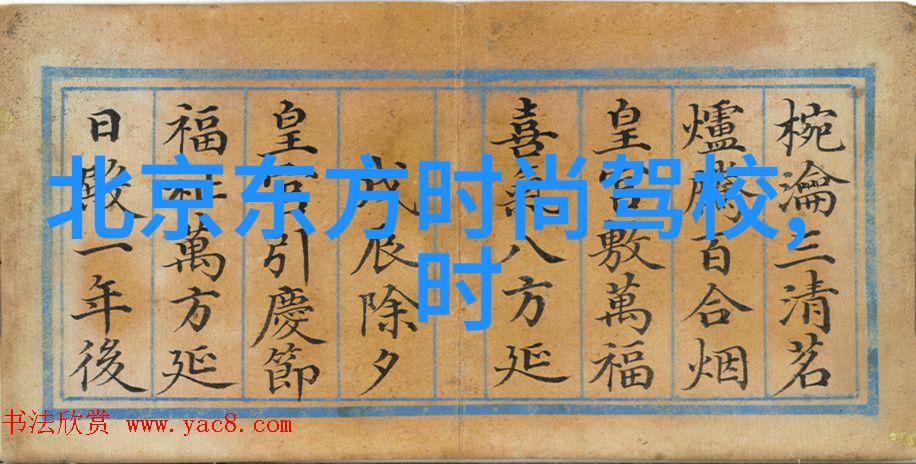 椀瀹三清茗
爐騰百合烟
皇宫敷萬福
喜氣八方延
戊辰除夕
皇宫引慶節
福祉萬方延
日殿一年後
北京东方时尚驾校,
时
书法欣赏 www.yac8.com